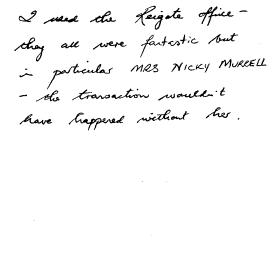 I used the Reigate office -
they all were fantastic but
in particular MRS NICKY MURRELL
- the transaction wouldn't
have happened without her.